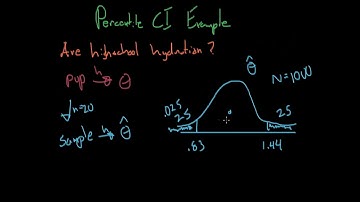 Percentile CI Example
Are highschool hydration?
pop h→ θ
n=20
Sample h→ θ̂
θ̂
N=1000
.025
25
25
.83
1.44